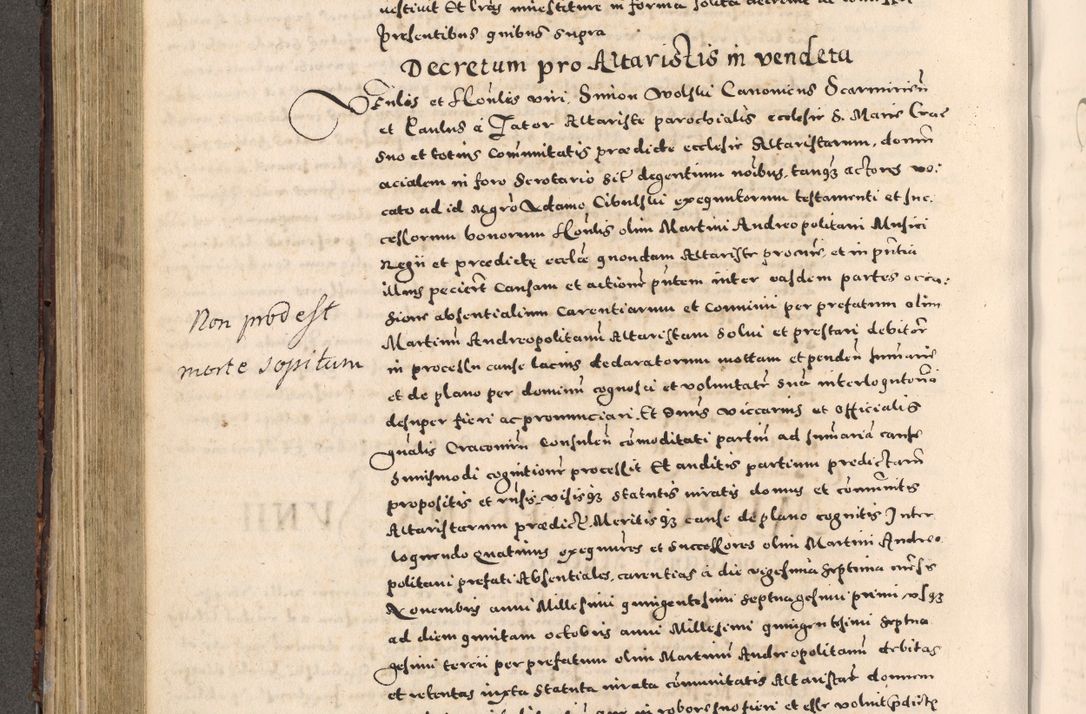 vestivit Et l̃ras investiture in forma solita decrevit
presentibus quibus supra
Decretum pro Altaristis in vendeta
et Honl̃es viri, Simon Wolski Canonicus Scarmirien̄
et Paulus à Jator Altariste parochialis ecclesie S. Marie Crac
suo et totius Com̄unitatis prædicte ecclesie Altaristarum, domū
acialem in foro Scrotario Sit degentium noībus, tanqȝ actores vo:
cato ad id Mgr̄o Adamo Cibulski exequutorum testamenti et suc:
cessorum bonorum Honl̃is olim Martini Andreopolitani Musici
Regii et prædictę eccl̃æ quondam Altariste procurē et in pn̄tia
illius pecier̄t Causam et actionē pn̄tem inter easdem partes occa:
sione absentialium Carentiarum et Com̄uni per prefatum olim
Martinū Andreopolitanū Altaristam Solvi et prestari debitor̄
in processu cause lacius declaratorum mottam et penden̄ sum̄arie
et de plano per dominū cognosci et voluntatē suā interloqutoriā
desuper fieri ac pronunciari, Et Dn̄us Viccarius et Officialis
gn̄alis Cracovien̄ Consulen̄ com̄oditati partiū ad sum̄ariā cause
huiusmodi cognitionē processit Et auditis partium predictarū
propositis et visis, visisqȝ Statutis iuratis domus et com̄unitis
Altaristarum prædict̄, Meritisqȝ cause de plano cognitis Inter
loquendo quatinus exequures et Successores olim Martini Andreo
politani prefati Absentiales, carentias à die vigesima septima mēsis
Novembris anni Millesimi quingentesimi septuagesimi primi usqȝ
ad diem quintam octobris anni Millesimi quingentesimi septua
gesimi tercii per prefatum olim Martinū Andreopolitanū debitas
et retentas iuxta Statuta iurata com̄unitatis Altaristar̄ domum
in robore suo fieri et esse voluit prædict̄
Non prodest
morte sopitum